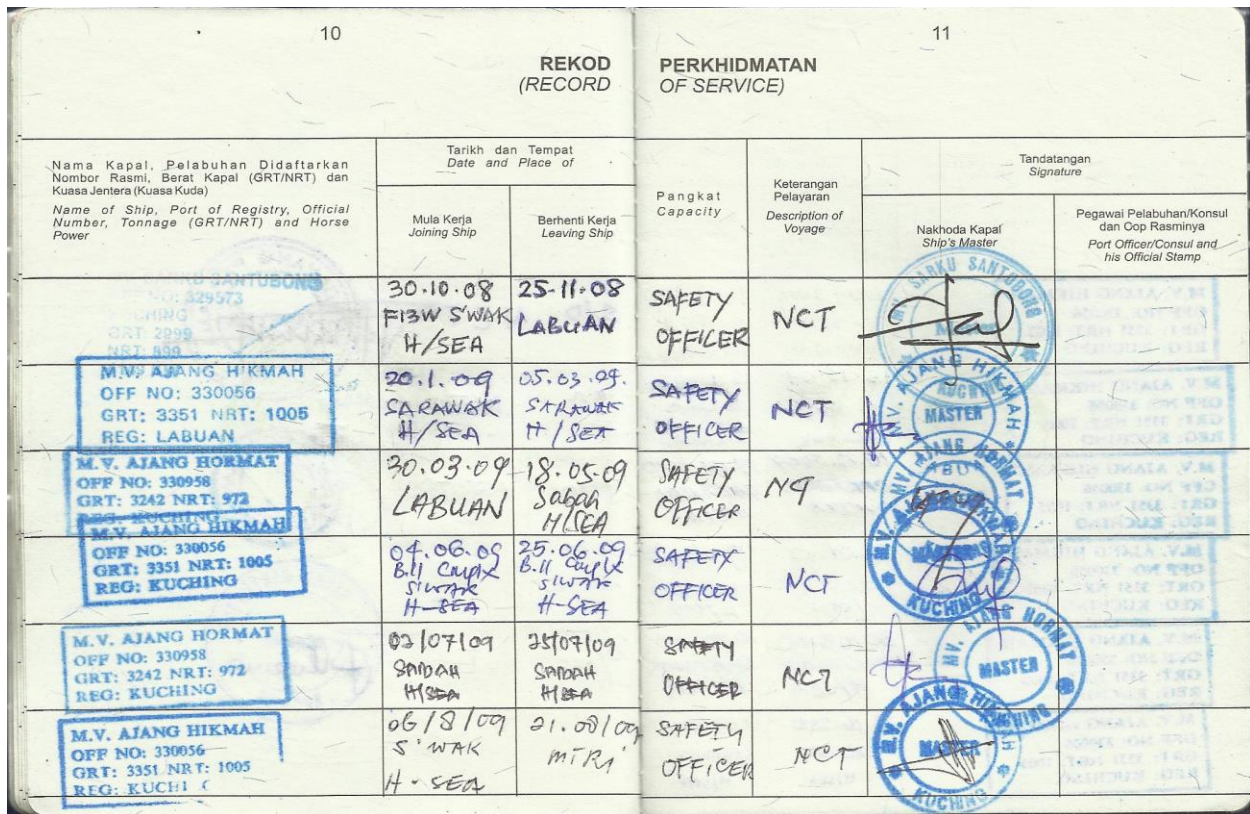 10
11
REKOD
(RECORD
PERKHIDMATAN
OF SERVICE)
Nama Kapal, Pelabuhan Didaftarkan
Nombor Rasmi, Berat Kapal (GRT/NRT) dan
Kuasa Jentera (Kuasa Kuda)
Name of Ship, Port of Registry, Official
Number, Tonnage (GRT/NRT) and Horse
Power
Tarikh dan Tempat
Date and Place of
Mula Kerja
Joining Ship
Berhenti Kerja
Leaving Ship
Pangkat
Capacity
Keterangan
Pelayaran
Description of
Voyage
Tandatangan
Signature
Nakhoda Kapal
Ship's Master
Pegawai Pelabuhan/Konsul
dan Oop Rasminya
Port Officer/Consul and
his Official Stamp
SARKU SANTUBONG
NO: 329573
CHING
GRT: 2999
NRT: 899
30.10.08
F13W S'WAK
H/SEA
25-11-08
LABUAN
SAFETY
OFFICER
NCT
SARKU SANTUBONG
Master
M.V. AJANG HIKMAH
OFF NO: 330056
GRT: 3351 NRT: 1005
REG: LABUAN
20.1.09
SARAWAK
H/SEA
05.03.09.
SARAWAK
H/SEA
SAFETY
OFFICER
NCT
MV. AJANG HIKMAH
MASTER
M.V. AJANG HORMAT
OFF NO: 330958
GRT: 3242 NRT: 972
REG: KUCHING
30.03.09
LABUAN
18.05.09
Sabah
H/SEA
SAFETY
OFFICER
MV. AJANG HORMAT
M.V. AJANG HIKMAH
OFF NO: 330056
GRT: 3351 NRT: 1005
REG: KUCHING
04.06.09
S'WAK
H-SEA
25.06.09
S'WAK
H-SEA
SAFETY
OFFICER
NCT
MASTER
KUCHING
M.V. AJANG HORMAT
OFF NO: 330958
GRT: 3242 NRT: 972
REG: KUCHING
02/07/09
SABAH
H/SEA
25/07/09
SABAH
H/SEA
SAFETY
OFFICER
NCT
MV. AJANG HORMAT
MASTER
KUCHING
M.V. AJANG HIKMAH
OFF NO: 330056
GRT: 3351 NRT: 1005
REG: KUCHI
06/8/09
S'WAK
H-SEA
21.08/09
MiRi
SAFETY
OFFICER
NCT
M.V. AJANG HIKMAH
MASTER
KUCHING